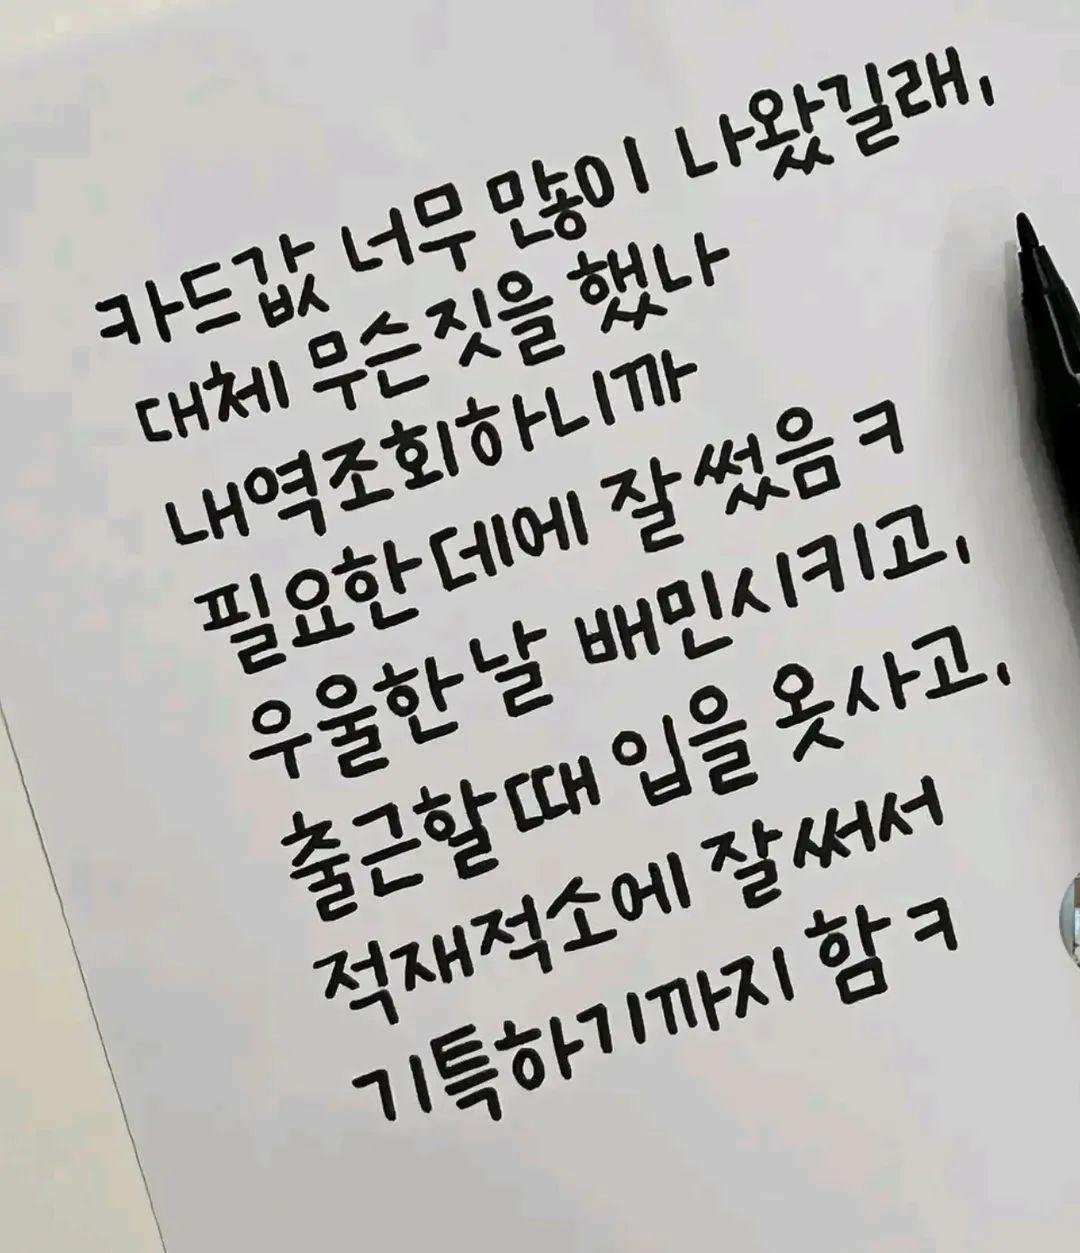 카드값 너무 많이 나왔길래,
대체 무슨짓을 했나
내역조회하니까
필요한데에 잘썼음ㅋ
우울한날 배민시키고,
출근할때 입을 옷사고,
적재적소에 잘써서
기특하기까지 함ㅋ